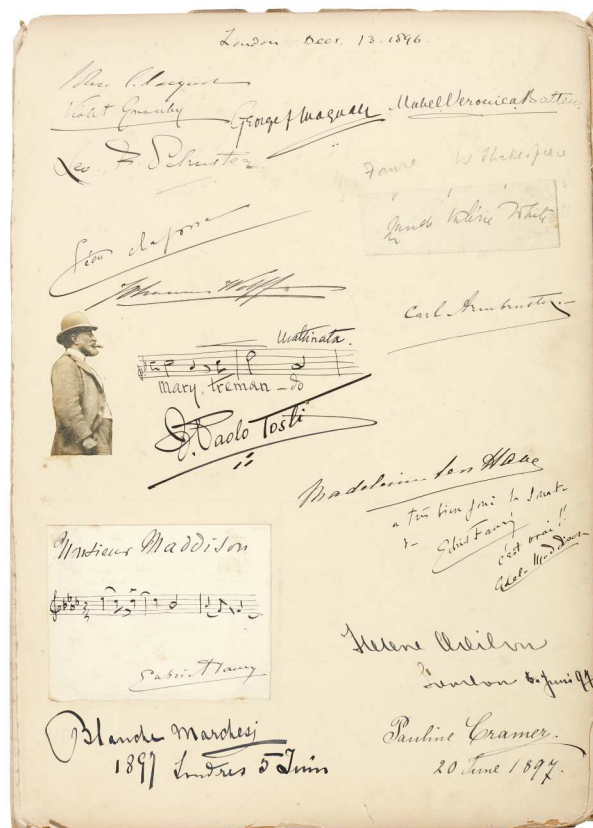 London Decr. 13. 1896.
Violet Granby
George J Maquay
Mabel Veronica Batten
Leo. F. Schuster
Faure W Shakespeare
Maude Valérie White
Johannes Wolff
Carl Armbruster
Mattinata.
Mary, treman - do
F. Paolo Tosti
Madeleine ten Have
a très bien joué la Sonate
de Gabriel Fauré
c'est vrai!!
Adela Maddison
Monsieur Maddison
Gabriel Fauré
Helene Odilon
London 6. Juni 97
Blanche Marchesi
1897 Londres 5 Juin
Pauline Cramer.
20 June 1897.